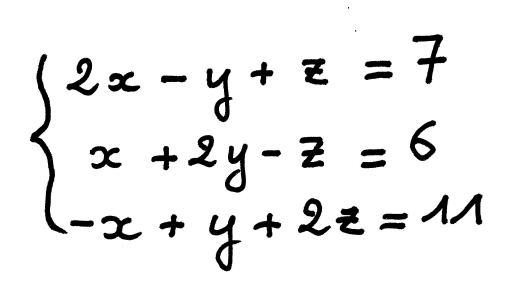 2x - y + z = 7
x + 2y - z = 6
-x + y + 2z = 11